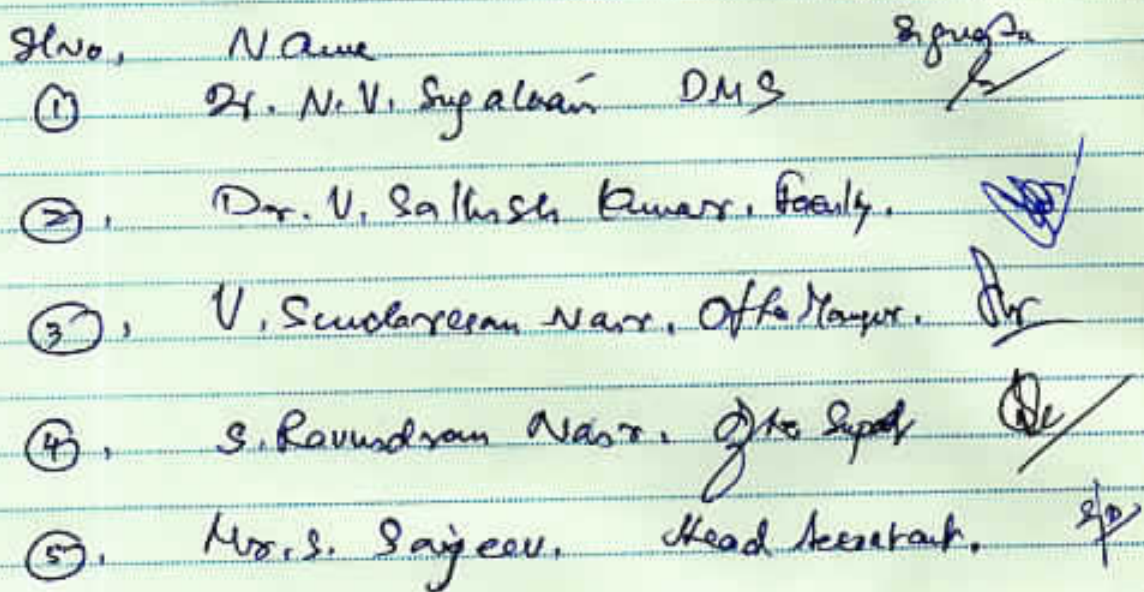 Sl No, Name Signature
① Dr. N. V. Sugathan DMS
②. Dr. V. Sathish Kumar. Faculty.
③. V. Sundaresan Nair. Office Manager.
④. S. Ravundran Nair. Office Supdt
⑤. Mr. S. Saijeev. Head Accountant.